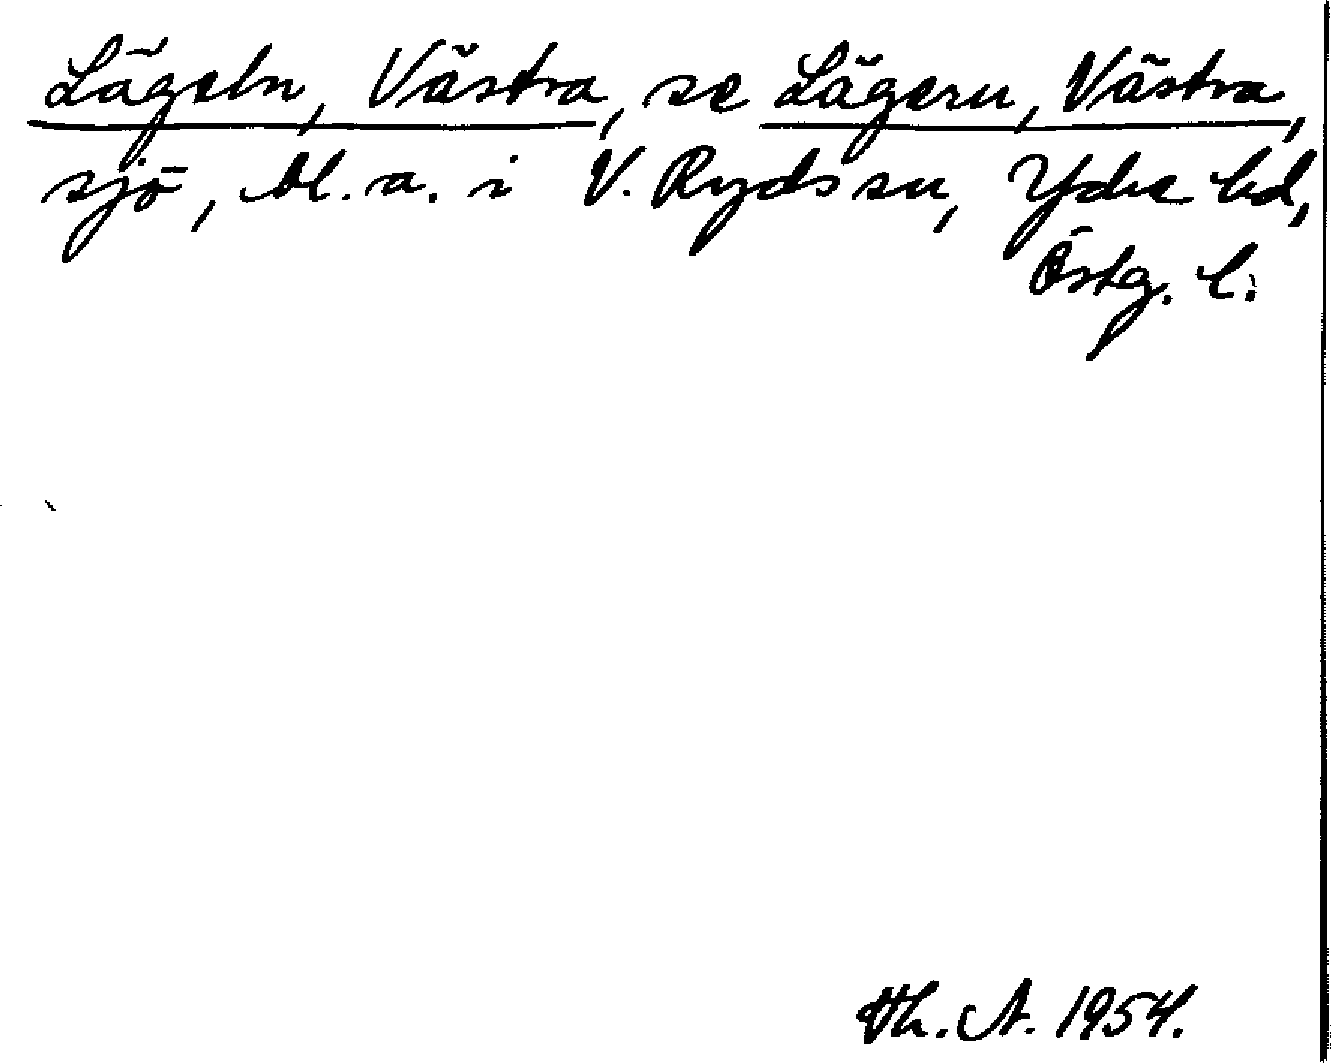 Lägeln, Västra, se Lägern, Västra,
sjö, bl. a. i V. Ryds sn, Ydre hd,
Östg. l.
Th. A. 1954.